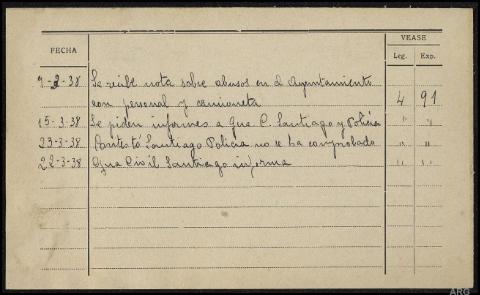 FECHA
VEASE
Leg.
Exp.
9-3-38 Se recibe nota sobre abusos en el Ayuntamiento
con personal y camioneta 4 91
15-3-38 Se piden informes a Gua C. Santiago y Policía " "
23-3-38 Contestó Santiago Policia no se ha comprobado
22-3-38 Gua Civil Santiago informa " "
ARG